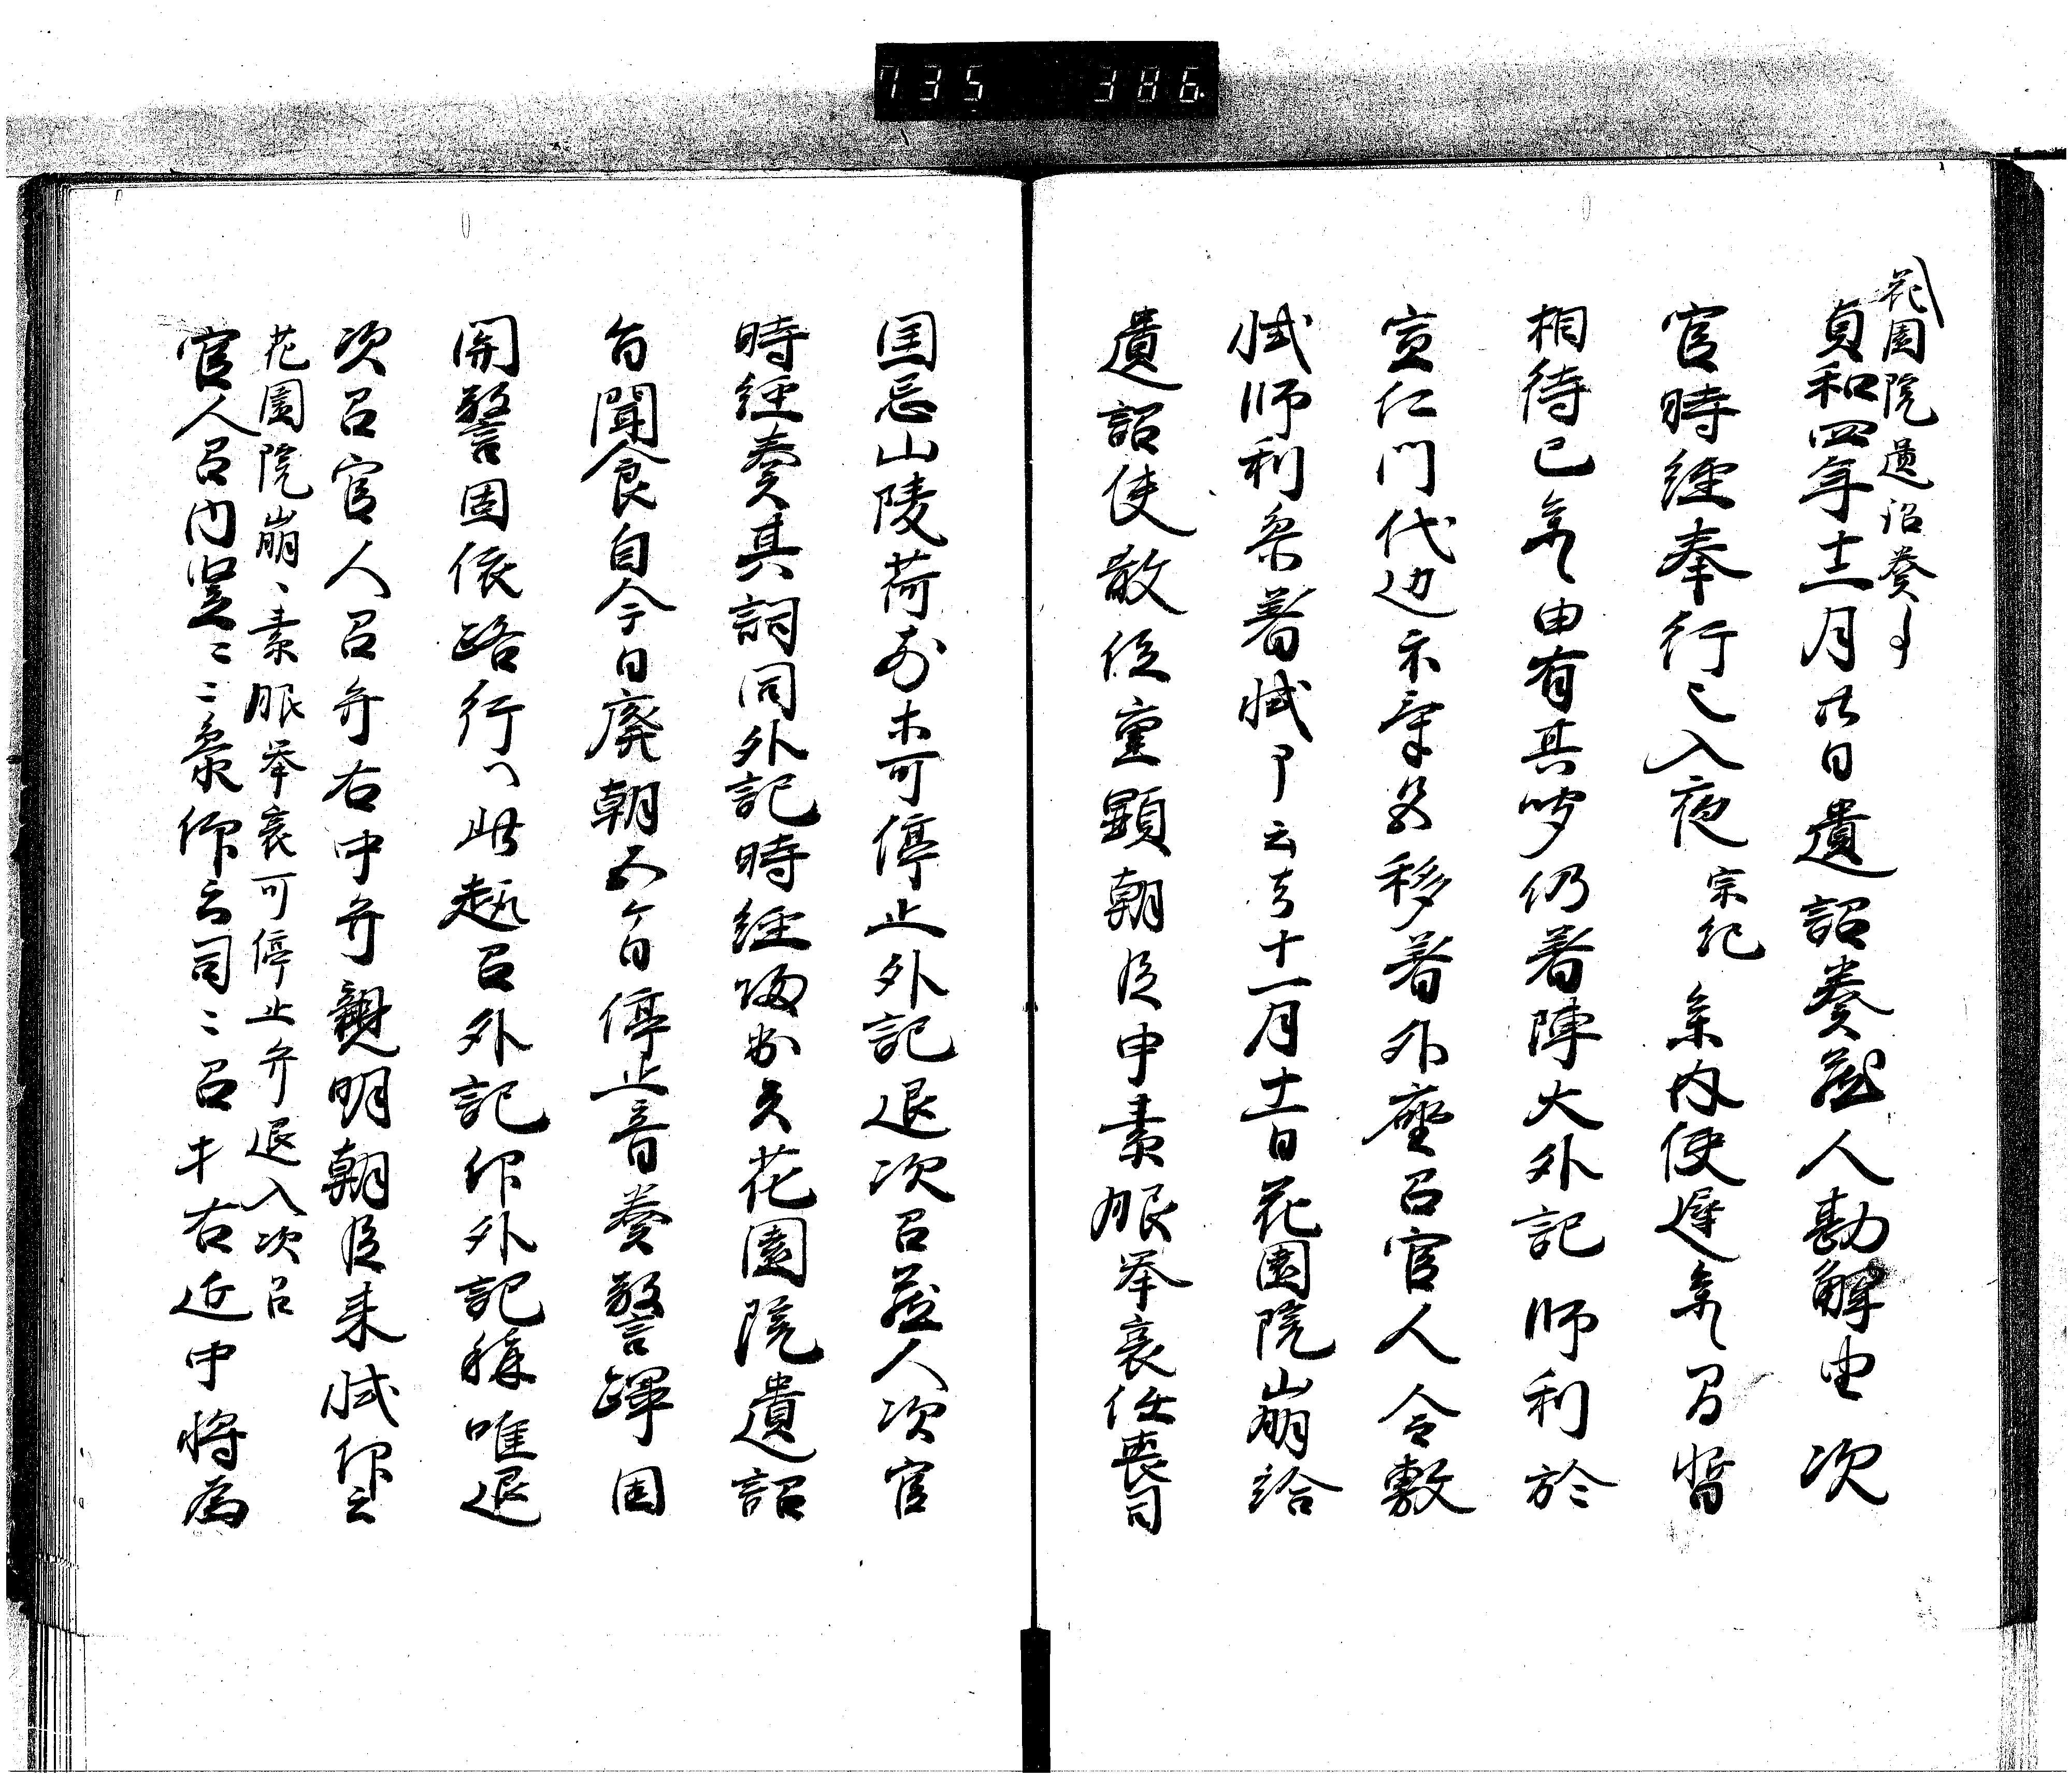 735 386
花園院遺詔奏事
貞和四年十二月廿日遺詔奏蔵人勘解由次
官時経奉行之入夜宗紀参内使遅参間暫
相待已参由有其告仍着陣大外記師利於
宣仁門代辺示
移着外座召官人令敷
軾師利参着軾申云去十一月十一日花園院崩給
遺詔使散位重顕朝臣申素服挙哀任喪司
国忌山陵荷前等可停止外記退次召蔵人次官
時経奏其詞同外記時経帰出云花園院遺詔
旨聞食自今日廃朝五ケ日停止音奏警蹕固
関警固依路行
此
召外記仰外記称唯退
次召官人召弁右中弁親明朝臣来軾仰云
花園院崩、素服挙哀可停止弁退入次召
官人召内竪ゝゝ参仰云司ゝ召
右近中将為